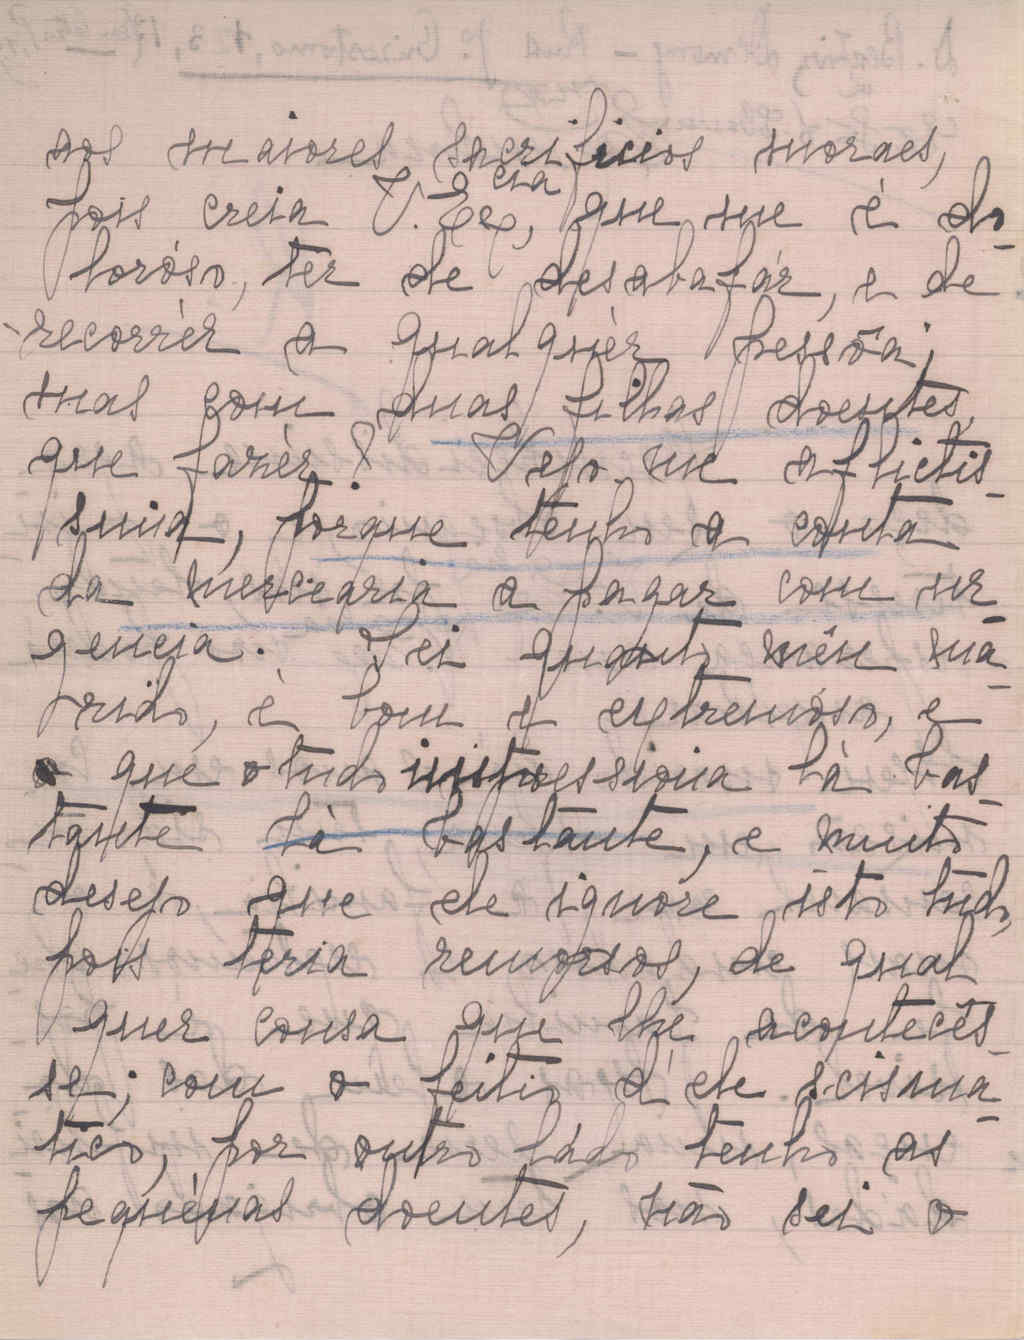 aos maiores sacrificios moraes,
pois creia V. Ex.cia, que me é do-
loróso, ter de desabafár, e de
recorrèr a qualquèr pessõa;
mas com duas filhas doentes,
que fazèr? Vejo-me aflictis-
sima, porque tenho a conta
da mercearia a pagar com ur
gencia. Sei quanto mêu ma-
rido, è bom e extremóso, e
o que o tudo impressiona lá bas-
tante lá bastante, e muito
desejo que ele ignore isto tudo,
pois teria remorsos, de qual
quer cousa que lhe acontecês-
se; com o feitio d'ele scisma-
tico, por outro lado tenho as
pequènas doentes, não sei o